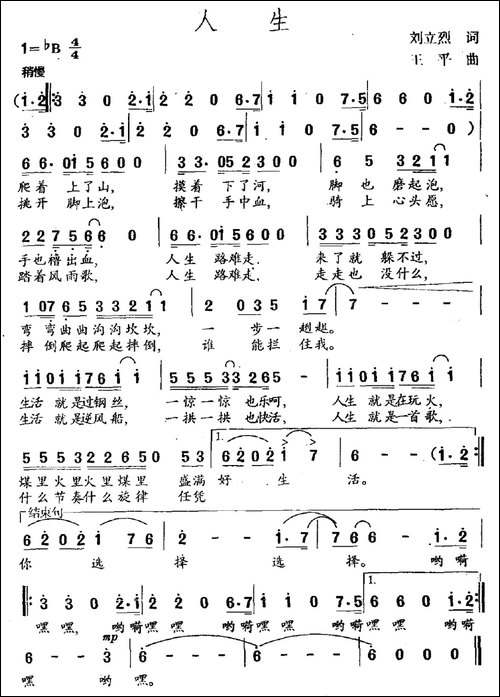 人 生
1=♭B 4/4
刘立烈 词
王 平 曲
稍慢
(1·2 ‖: 3 3 0 2·1 | 2 2 0 6·7 | 1 1 0 7·5 | 6 6 0 1·2
3 3 0 2·1 | 2 2 0 6·7 | 1 1 0 7·5 | 6 - - 0)
6 6·0 1 5 6 0 0 | 3 3·0 5 2 3 0 0 | 6 5 3 2 1 1
爬着 上了山, 摸着 下了河, 脚 也 磨起泡,
挑开 脚上泡, 擦干 手中血, 骑 上 心头愿,
2 2 7 5 6 6 0 | 6 6·0 1 5 6 0 0 | 3 3 3 0 5 2 3 0 0
手也 出血, 人生 路难走. 来了就 躲不过,
踏着风雨歌, 人生 路难走. 走走也 没什么,
1 0 7 6 5 3 3 2 1 1 | 2 0 3 5 1 7 | 7 - - -
弯 弯曲曲沟沟坎坎, 一 步一 趔趄。
摔 倒爬起爬起摔倒, 谁 能拦 住我。
1 1 0 1 1 7 6 1 | 5 5 5 3 3 2 6 5 | 1 1 0 1 1 7 6 1
生活 就是过钢丝, 一惊一惊 也乐呵, 人生 就是在玩火,
生活 就是逆风船, 一拱一拱 也快活, 人生 就是一首歌,
5 5 5 3 2 2 6 5 0 | 5 3 6 2 0 2 1 7 | 6 - - (1·2 :‖
1.
煤里火里火里煤里 盛满 好 生 活。
什么节奏什么旋律 任凭
结束句
6 2 0 2 1 7 6 | 2 - - 1·7 | 7 6 6 - 1·2
你 选 择 选 择。 哟嗬
‖: 3 3 0 2·1 | 2 2 0 6·7 | 1 1 0 7·5 | 6 6 0 1·2 :‖
1.
嘿嘿, 哟嗬嘿 嘿, 哟嗬嘿嘿, 哟嗬嘿 嘿, 哟嗬
6 - - 3 | 6 - - - | 6 - - - | 6 0 0 0
mp
嘿, 哟 嘿。